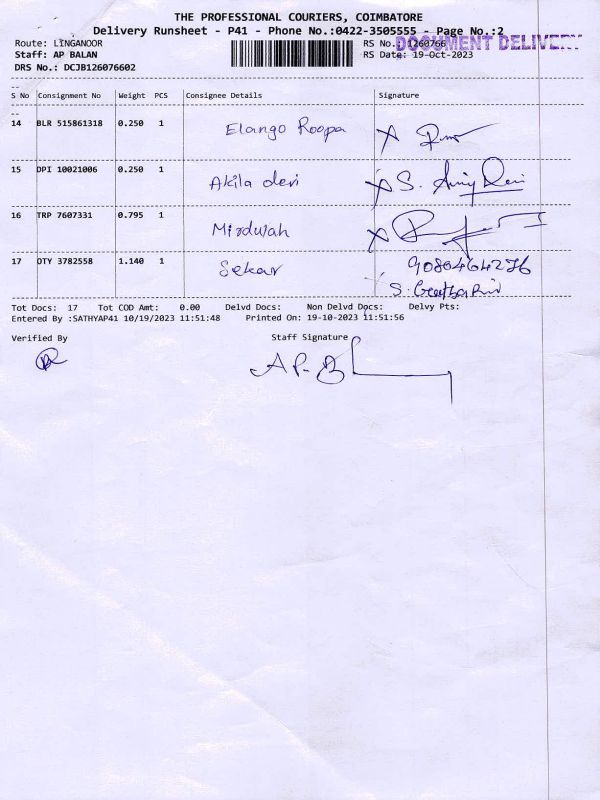 THE PROFESSIONAL COURIERS, COIMBATORE
Delivery Runsheet - P41 - Phone No.:0422-3505555 - Page No.:2
Route: LINGANOOR RS No.: 1260766 DOCUMENT DELIVERY
Staff: AP BALAN RS Date: 19-Oct-2023
DRS No.: DCJB126076602
S No Consignment No Weight PCS Consignee Details Signature
14 BLR 515861318 0.250 1 Elango Roopa
15 DPI 10021006 0.250 1 Akila devi X S.
16 TRP 7607331 0.795 1 Mirdulah X
17 OTY 3782558 1.140 1 Sekar 9080464276
S.
Tot Docs: 17 Tot COD Amt: 0.00 Delvd Docs: Non Delvd Docs: Delvy Pts:
Entered By :SATHYAP41 10/19/2023 11:51:48 Printed On: 19-10-2023 11:51:56
Verified By Staff Signature
A P. B